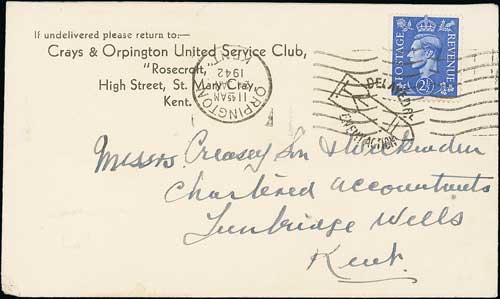 If undelivered please return to:—
Crays & Orpington United Service Club,
"Rosecroft,"
High Street, St. Mary Cray,
Kent.
ORPINGTON
KENT
11 45 AM
1942
POSTAGE REVENUE
2½D
DELAYED BY
ENEMY ACTION
Messrs. Creasey Son & Wickenden
Chartered Accountants
Tunbridge Wells
Kent.